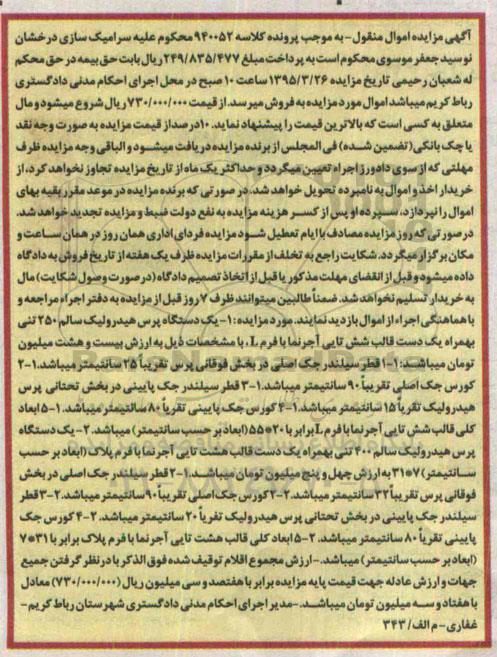 آگهی مزایده اموال منقول- به موجب پرونده کلاسه ۹۴۰۰۵۲ محکوم علیه سرامیک سازی درخشان
نو سیدجعفر موسوی محکوم است به پرداخت مبلغ ۲۴۹/۸۳۵/۴۷۷ ریال بابت حق بیمه در حق محکم
له شعبان رحیمی تاریخ مزایده ۱۳۹۵/۳/۲۶ ساعت ۱۰ صبح در محل اجرای احکام مدنی دادگستری
رباط کریم میباشد اموال مورد مزایده به فروش میرسد. از قیمت ۷۳۰/۰۰۰/۰۰۰ ریال شروع میشود و مال
متعلق به کسی است که بالاترین قیمت را پیشنهاد نماید. ۱۰درصد از قیمت مزایده به صورت وجه نقد
یا چک بانکی(تضمین شده) فی المجلس از برنده مزایده دریافت میشود و الباقی وجه مزایده ظرف
مهلتی که از سوی دادورز اجراء تعیین میگردد و حداکثر یک ماه از تاریخ مزایده تجاوز نخواهد کرد، از
خریدار اخذ و اموال به نامبرده تحویل خواهد شد. در صورتی که برنده مزایده در موعد مقرر بقیه بهای
اموال را نپردازد، سپرده او پس از کسر هزینه مزایده به نفع دولت ضبط و مزایده تجدید خواهد شد.
در صورتی که روز مزایده مصادف با ایام تعطیل شود مزایده فردای اداری همان روز در همان ساعت و
مکان برگزار میگردد. شکایت راجع به تخلف از مقررات مزایده ظرف یک هفته از تاریخ فروش به دادگاه
داده میشود و قبل از انقضای مهلت مذکور یا قبل از اتخاذ تصمیم دادگاه(در صورت وصول شکایت) مال
به خریدار تسلیم نخواهد شد. ضمناً طالبین میتوانند ظرف ۷ روز قبل از مزایده به دفتر اجراء مراجعه و
با هماهنگی اجراء از اموال بازدید نمایند. مورد مزایده: ۱- یک دستگاه پرس هیدرولیک سالم ۲۵۰ تنی
بهمراه یک دست قالب شش تایی آجرنما با فرم L، با مشخصات ذیل به ارزش بیست و هشت میلیون
تومان میباشد: ۱-۱ قطر سیلندر جک اصلی در بخش فوقانی پرس تقریباً ۲۵ سانتیمتر میباشد. ۱-۲
کورس جک اصلی تقریباً ۹۰ سانتیمتر میباشد. ۱-۳ قطر سیلندر جک پایینی در بخش تحتانی پرس
هیدرولیک تقریباً ۱۵ سانتیمتر میباشد. ۱-۴ کورس جک پایینی تقریباً ۸۰ سانتیمتر میباشد. ۱-۵ ابعاد
کلی قالب شش تایی آجرنما با فرم L برابر با ۲۰*۵۵(ابعاد بر حسب سانتیمتر) میباشد. ۲- یک دستگاه
پرس هیدرولیک سالم ۴۰۰ تنی بهمراه یک دست قالب هشت تایی آجرنما با فرم پلاک (ابعاد بر حسب
سانتیمتر) ۷*۳۱ به ارزش چهل و پنج میلیون تومان میباشد. ۲-۱ قطر سیلندر جک اصلی در بخش
فوقانی پرس تقریباً ۳۲ سانتیمتر میباشد. ۲-۲ کورس جک اصلی تقریباً ۹۰ سانتیمتر میباشد. ۲-۳ قطر
سیلندر جک پایینی در بخش تحتانی پرس هیدرولیک تقریباً ۲۰ سانتیمتر میباشد. ۲-۴ کورس جک
پایینی تقریباً ۸۰ سانتیمتر میباشد. ۲-۵ ابعاد کلی قالب هشت تایی آجرنما با فرم پلاک برابر با ۳۱*۷
(ابعاد بر حسب سانتیمتر) میباشد.- ارزش مجموع اقلام توقیف شده فوق الذکر با در نظر گرفتن جمیع
جهات و ارزش عادله جهت قیمت پایه مزایده برابر با هفتصد و سی میلیون ریال (۷۳۰/۰۰۰/۰۰۰) معادل
با هفتاد و سه میلیون تومان میباشد.- مدیر اجرای احکام مدنی دادگستری شهرستان رباط کریم-
غفاری- م الف/ ۳۴۳